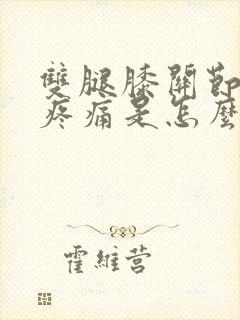 雙腿膝關節
疼痛是怎麼
霍維營